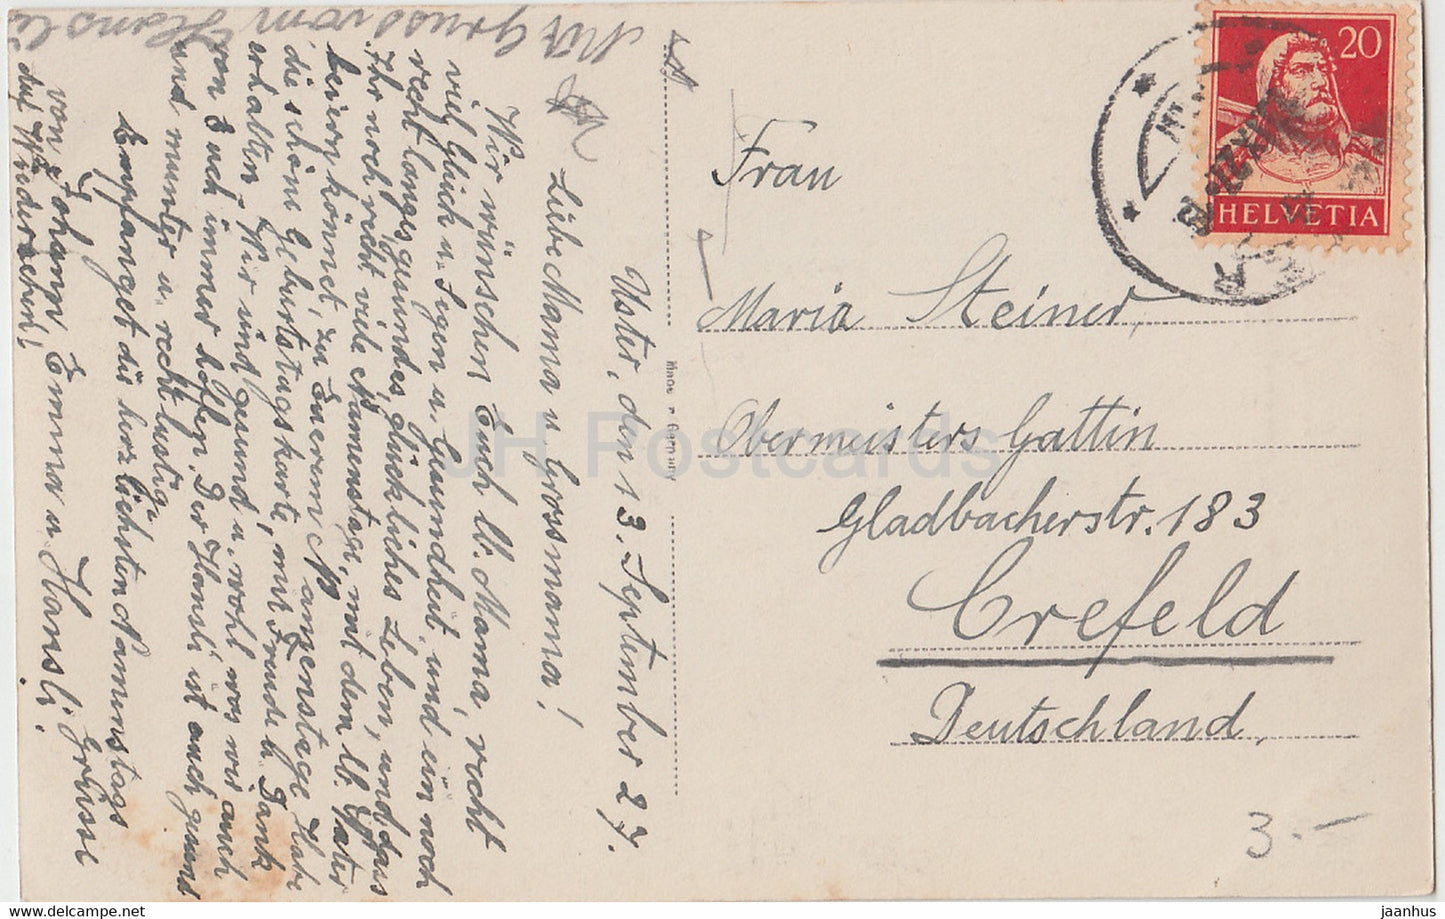 Mit Gruss vom Hansli
Uster, den 13. September 27.
Liebe Mama u Grossmama!
Wir wünschen Euch lb. Mama, recht
viel Glück u. Segen u. Gesundheit, und ein noch
recht langes, gesundes, glückliches Leben, und dass
Ihr noch recht viele Namenstage, mit dem lb. Vater
feiern könnet, zu Eurem Namenstage. Habe
die schöne Geburtstagskarte, mit Freude u. Dank
erhalten. Wir sind gesund u. wohl was wir auch
von Euch immer hoffen. Der Hansli ist auch gesund
und munter u. recht lustig.
Empfanget die herzlichsten Namenstags
Grüsse
von Johann, Emma u Hansli.
Auf Wiedersehn!
Frau
Maria Steiner,
Obermeisters Gattin
Gladbacherstr. 183
Crefeld
Deutschland,
20
HELVETIA
3.-
JH Postcards
www.delcampe.net
jaanhus